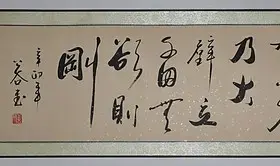 乃大
壁立
千仞無
欲則
剛
辛卯年